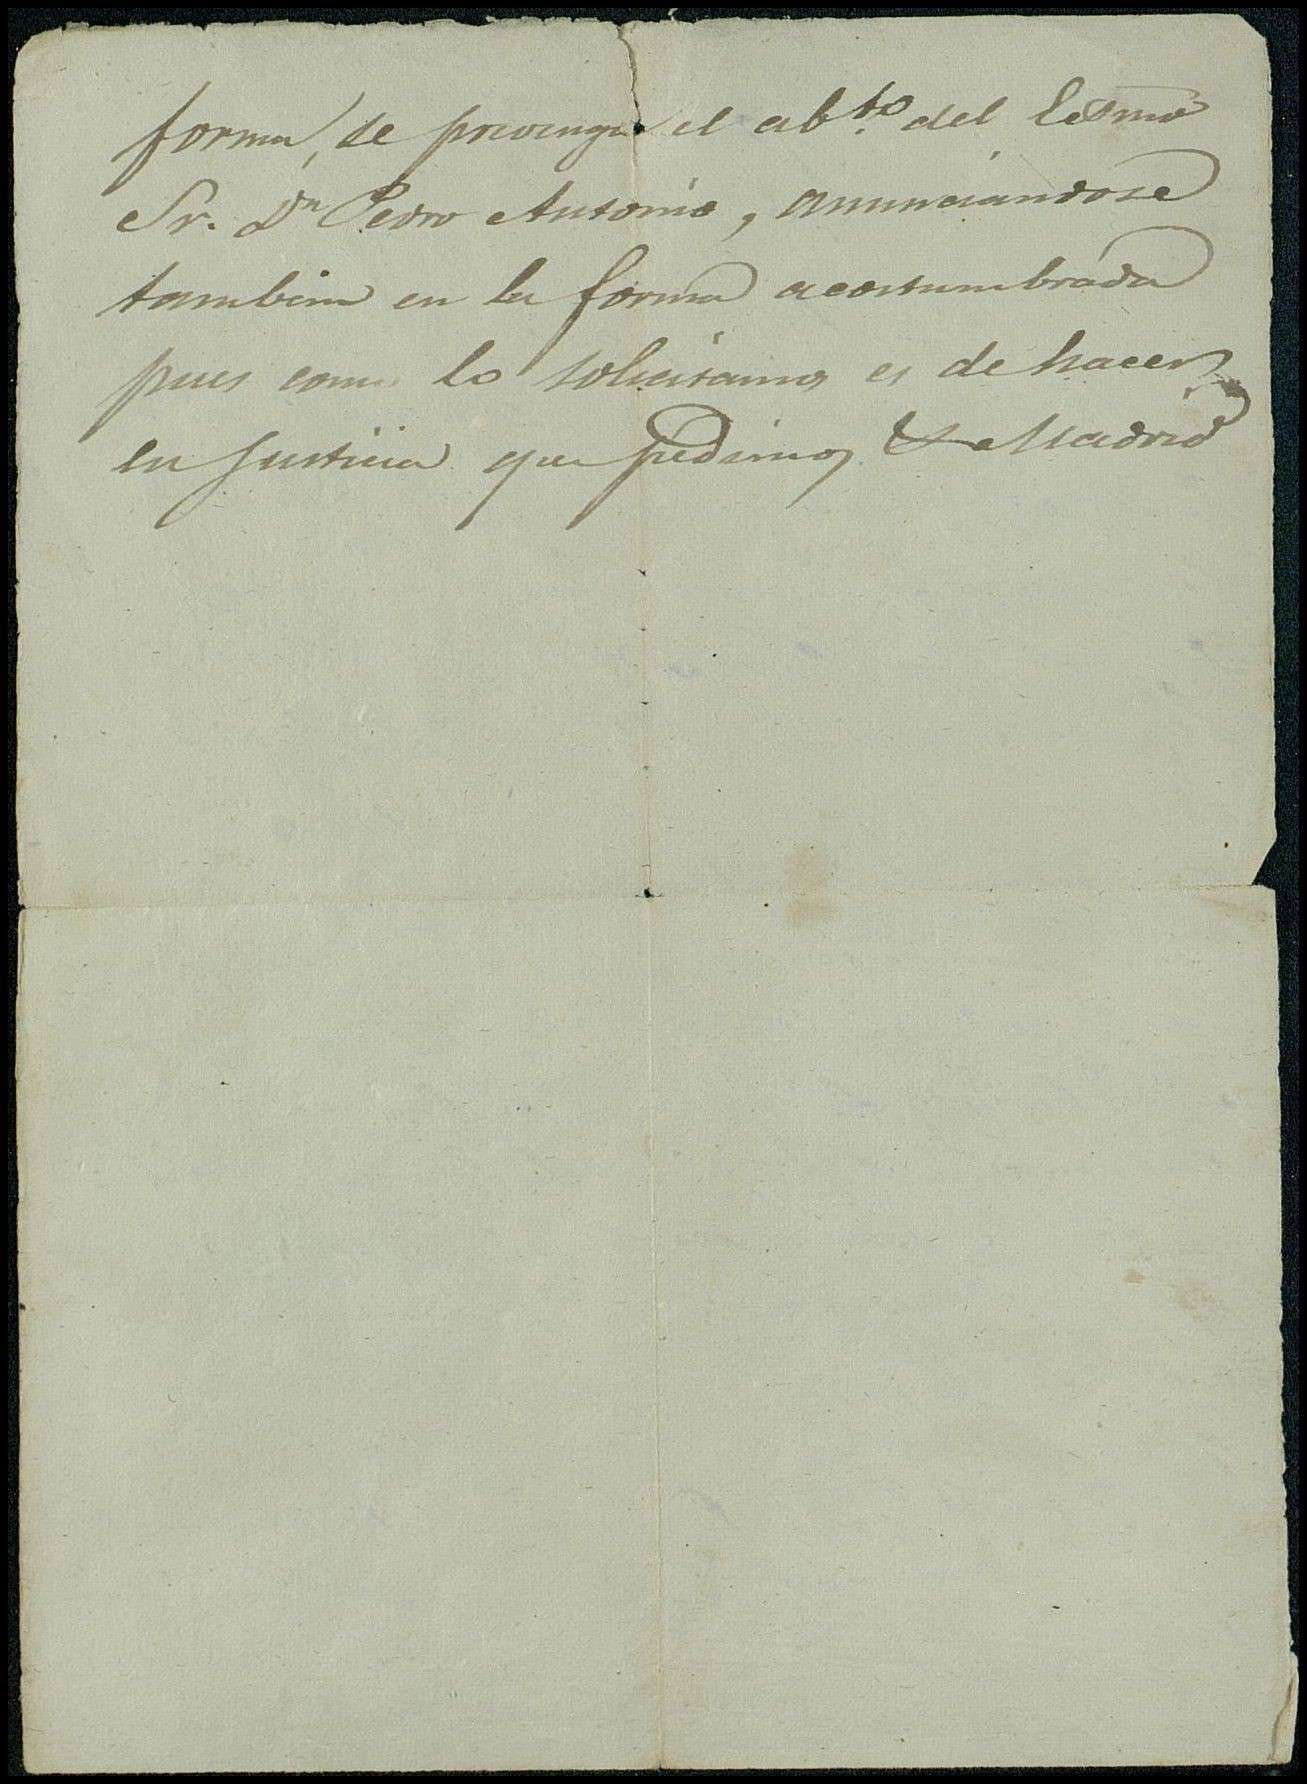 forma, se prevenga el ab.to del Excmo
Sr. Dn Pedro Antonio, anunciandose
tambien en la forma acostumbrada
pues como lo solicitamos es de hacer
en Justicia que pedimos & Madrid